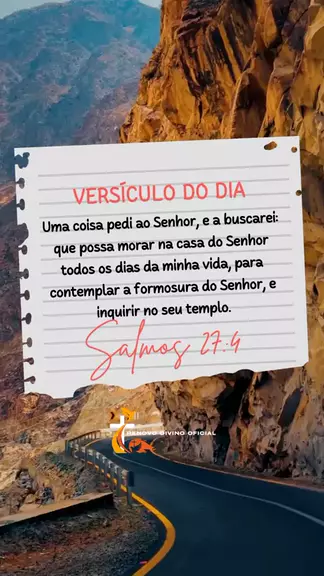 VERSÍCULO DO DIA
Uma coisa pedi ao Senhor, e a buscarei:
que possa morar na casa do Senhor
todos os dias da minha vida, para
contemplar a formosura do Senhor, e
inquirir no seu templo.
Salmos 27:4
RENOVO DIVINO OFICIAL